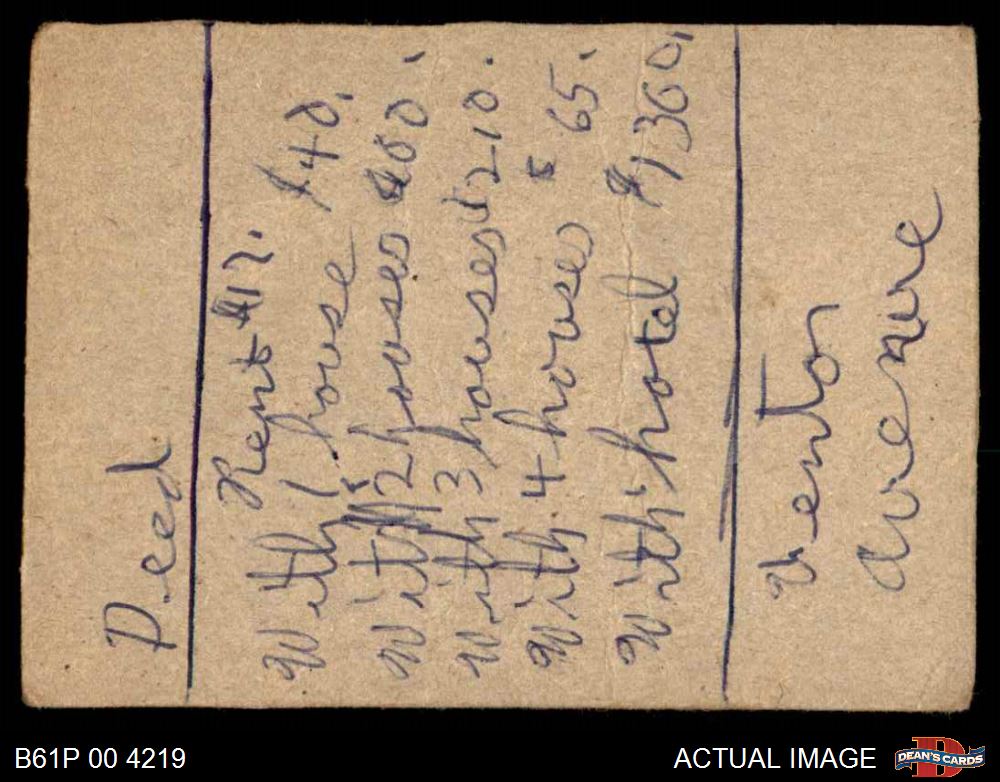 Deed
Rent $12.
With 1 house $40.
With 2 houses 100.
With 3 houses $210.
With 4 houses $ 65.
With hotel $1,300,
Ventor
Avenue
B61P 00 4219
ACTUAL IMAGE
DEAN'S CARDS